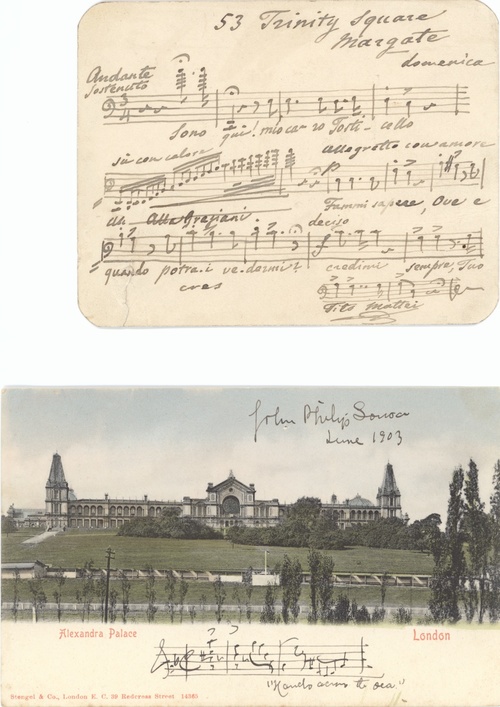 53 Trinity Square
Margate
domenica
Andante
Sostenuto
Sono qui! mio ca-ro Torti-cello
su con calore
allegretto con amore
Ah Alla Graziani.
Fammi sapere, Ove e
deciso
quando potra-i ve-dermi? credimi sempre, Tuo
cres
Tito Mattei
John Philip Sousa
June 1903
Alexandra Palace
London
"Hands across the sea"
Stengel & Co., London E. C. 39 Redcross Street 14565